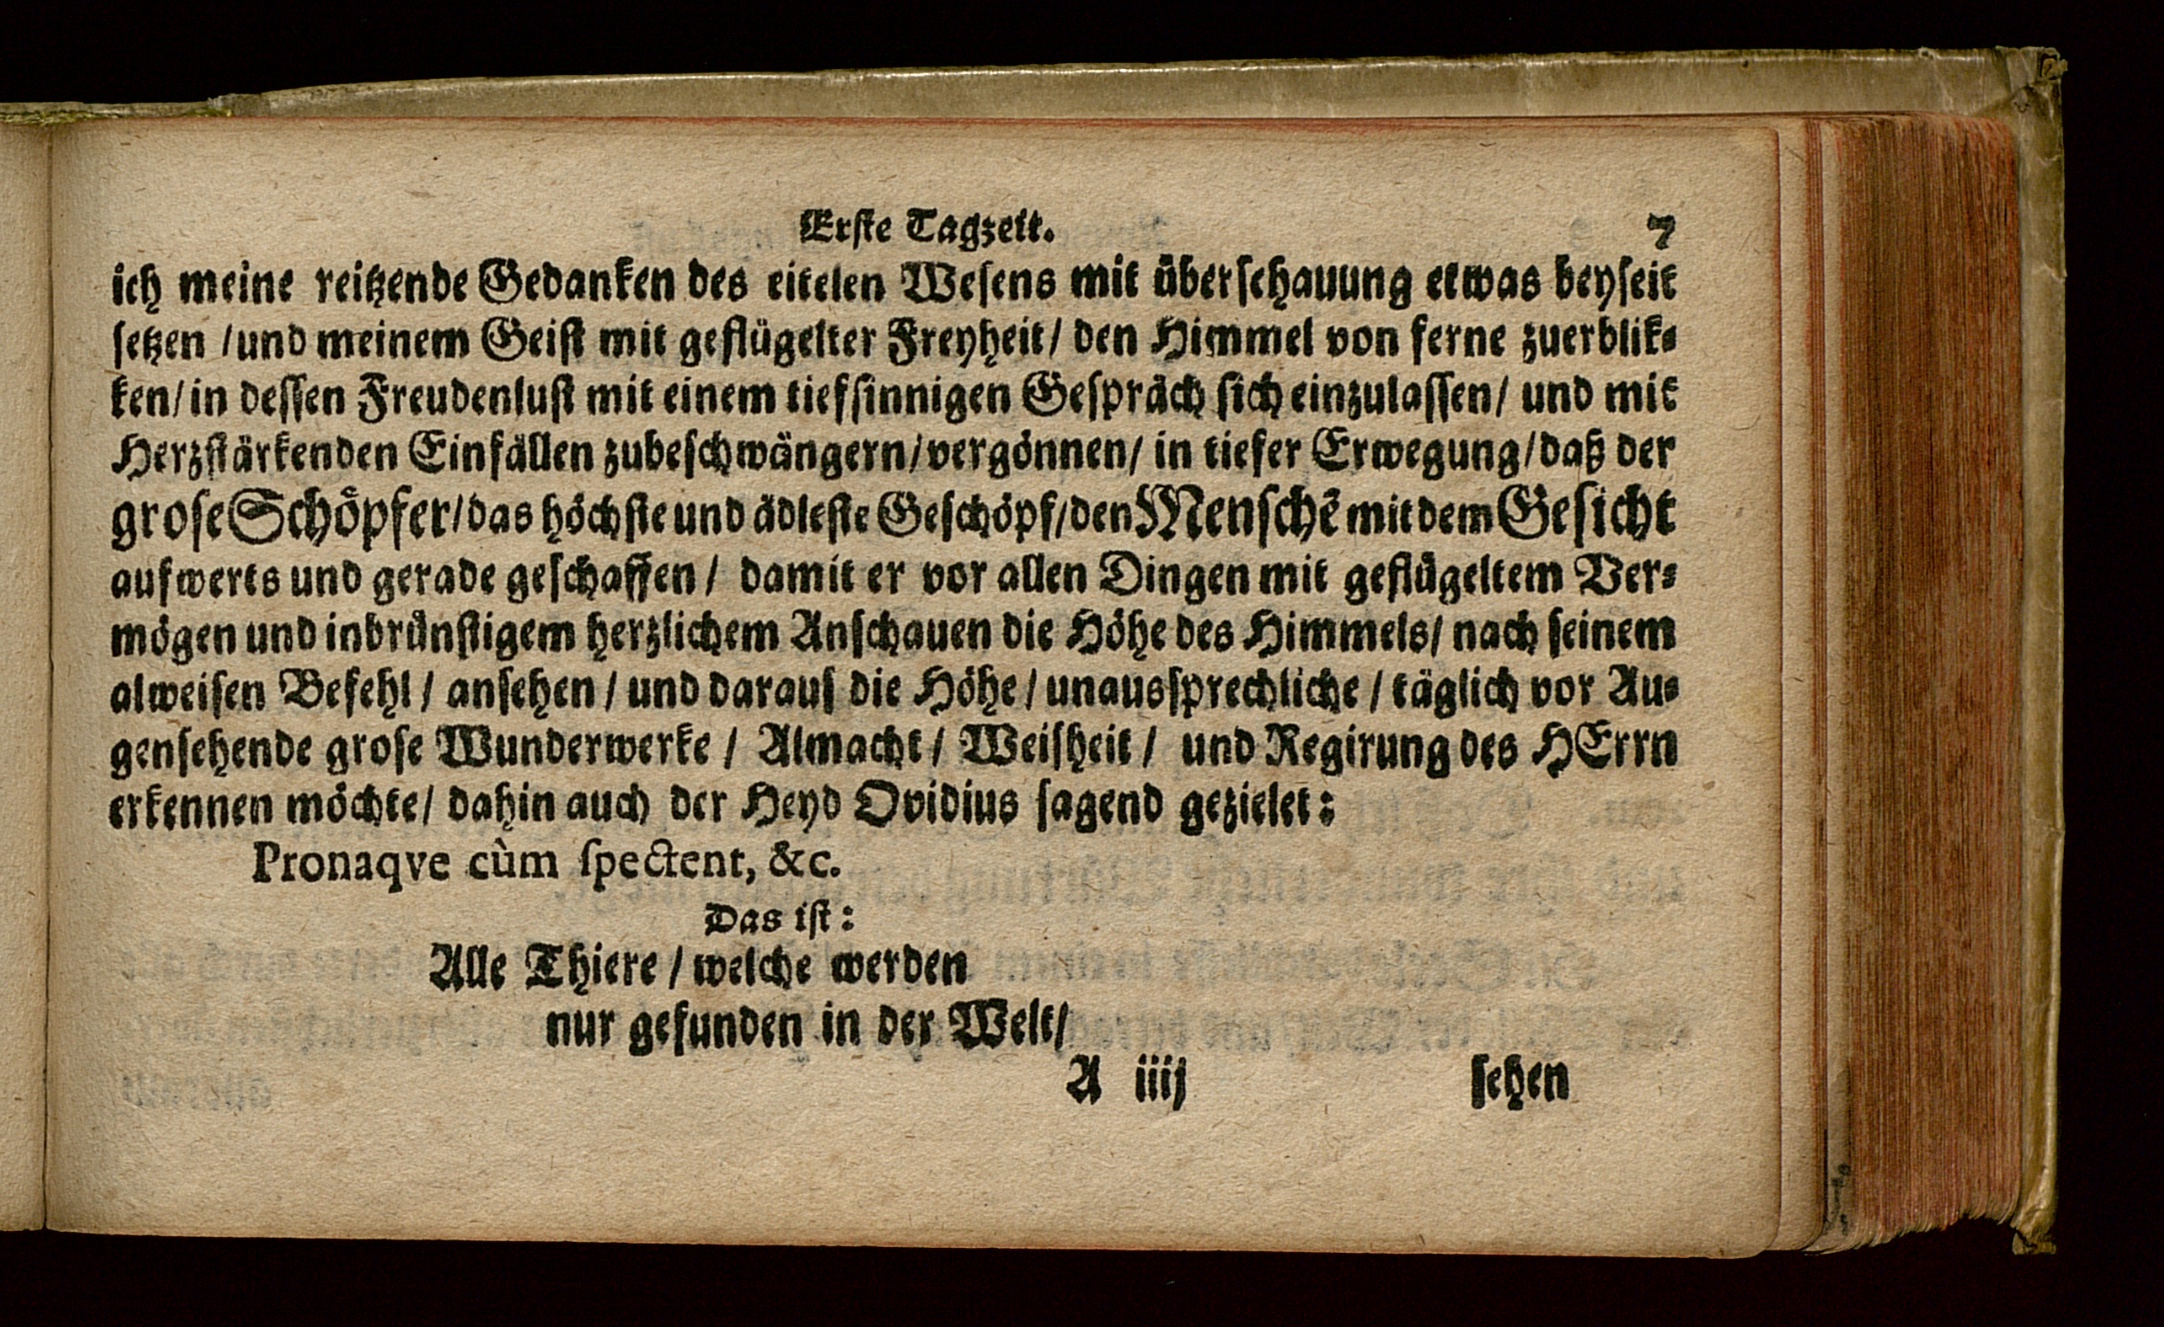 Erſte Tagzeit. 7
ich meine reitzende Gedanken des eitelen Weſens mit überſchauung etwas beyſeit
ſetzen / und meinem Geiſt mit geflügelter Freyheit / den Himmel von ferne zuerblik⸗
ken / in deſſen Freudenluſt mit einem tiefſinnigen Geſpräch ſich einzulaſſen / und mit
Herzſtärkenden Einfällen zubeſchwängern / vergönnen / in tiefer Erwegung / daß der
groſe Schöpfer / das höchſte und ädleſte Geſchöpf / den Menſchẽ mit dem Geſicht
aufwerts und gerade geſchaffen / damit er vor allen Dingen mit geflügeltem Ver⸗
mögen und inbrünſtigem herzlichem Anſchauen die Höhe des Himmels / nach ſeinem
alweiſen Befehl / anſehen / und daraus die Höhe / unausſprechliche / täglich vor Au⸗
genſehende groſe Wunderwerke / Almacht / Weiſheit / und Regirung des HErrn
erkennen möchte / dahin auch der Heyd Ovidius ſagend gezielet:
Pronaqve cùm ſpectent, &c.
Das iſt:
Alle Thiere / welche werden
nur gefunden in der Welt /
A iiij ſehen